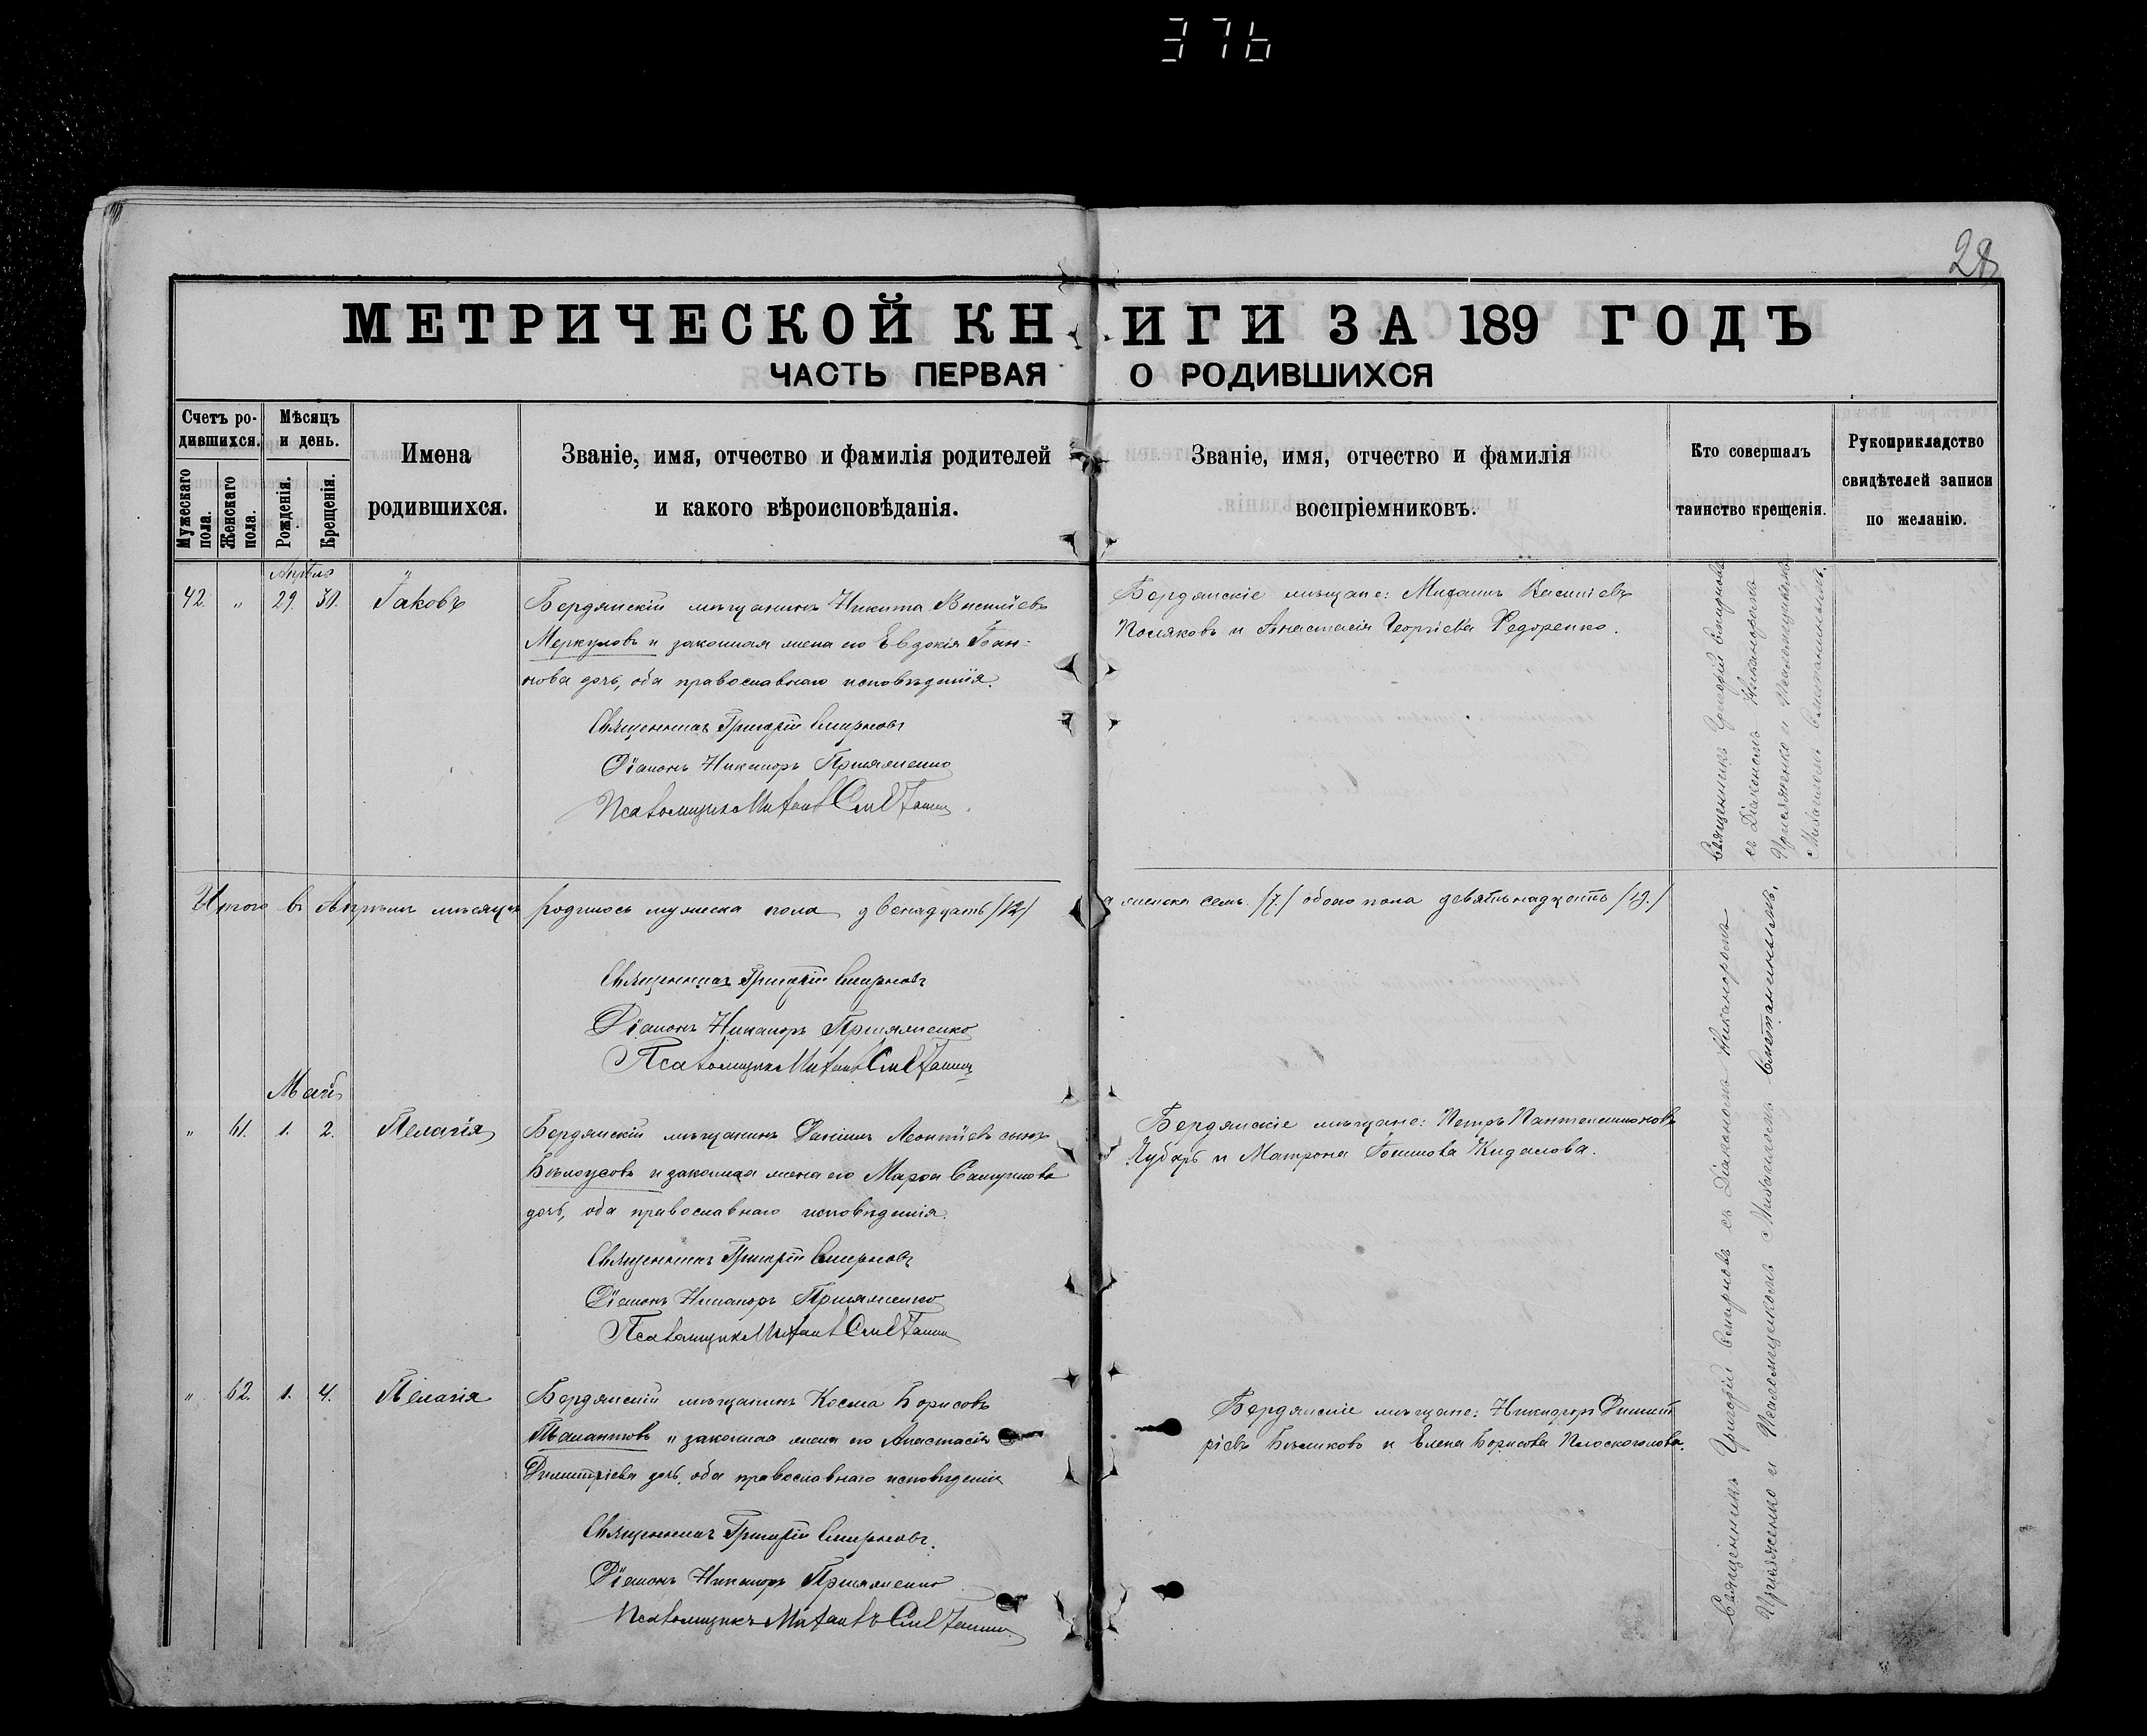 376
28
МЕТРИЧЕСКОЙ КНИГИ ЗА 189 ГОДЪ
ЧАСТЬ ПЕРВАЯ О РОДИВШИХСЯ
Счетъ родившихся.
Мужескаго пола.
Женскаго пола.
Мѣсяцъ и день.
Рожденія.
Крещенія.
Имена
родившихся.
Званіе, имя, отчество и фамилія родителей
и какого вѣроисповѣданія.
Званіе, имя, отчество и фамилія
воспріемниковъ.
Кто совершалъ
таинство крещенія.
Рукоприкладство
свидѣтелей записи
по желанію.
Апрѣль
42. " 29. 30. Іаковъ
Бердянскій мѣщанинъ Никита Василіевъ
Меркуловъ и законная жена его Евдокія Іоан-
нова дочь, оба православнаго исповѣданія.
Священникъ Григорій Смирновъ
Діаконъ Никаноръ Присяженко
Псаломщикъ Михаилъ
Бердянскіе мѣщане: Михаилъ Василіевъ
Поляковъ и Анастасія Георгіева Федоренко.
Священникъ Григорій Смирновъ
съ Діакономъ Никаноромъ
Присяженко и Псаломщикомъ
Михаиломъ Сметанинымъ.
Итого въ Апрѣлѣ мѣсяцѣ родилось мужеска пола двенадцать /12/
а женска семь /7./ обоего пола девятьнадцать /19./
Священникъ Григорій Смирновъ
Діаконъ Никаноръ Присяженко
Псаломщикъ Михаилъ
Май
" 61. 1. 2. Пелагія
Бердянскій мѣщанинъ Даніилъ Леонтіевъ сынъ
Бѣлоусовъ и законная жена его Марѳа
дочь, оба православнаго исповѣданія.
Священникъ Григорій Смирновъ
Діаконъ Никаноръ Присяженко
Псаломщикъ Михаилъ
Бердянскіе мѣщане: Петръ Пантелеимоновъ
и Матрона
" 62. 1. 4. Пелагія
Бердянскій мѣщанинъ Косма Борисовъ
и законная жена его Анастасія
Димитріева дочь, оба православнаго исповѣданія
Священникъ Григорій Смирновъ.
Діаконъ Никаноръ Присяженко
Псаломщикъ Михаилъ
Бердянскіе мѣщане: Никифоръ Димит-
ріевъ и Елена Борисова Плоскоголова.
Священникъ Григорій Смирновъ съ Діакономъ Никаноромъ
Присяженко и Псаломщикомъ Михаиломъ Сметанинымъ.